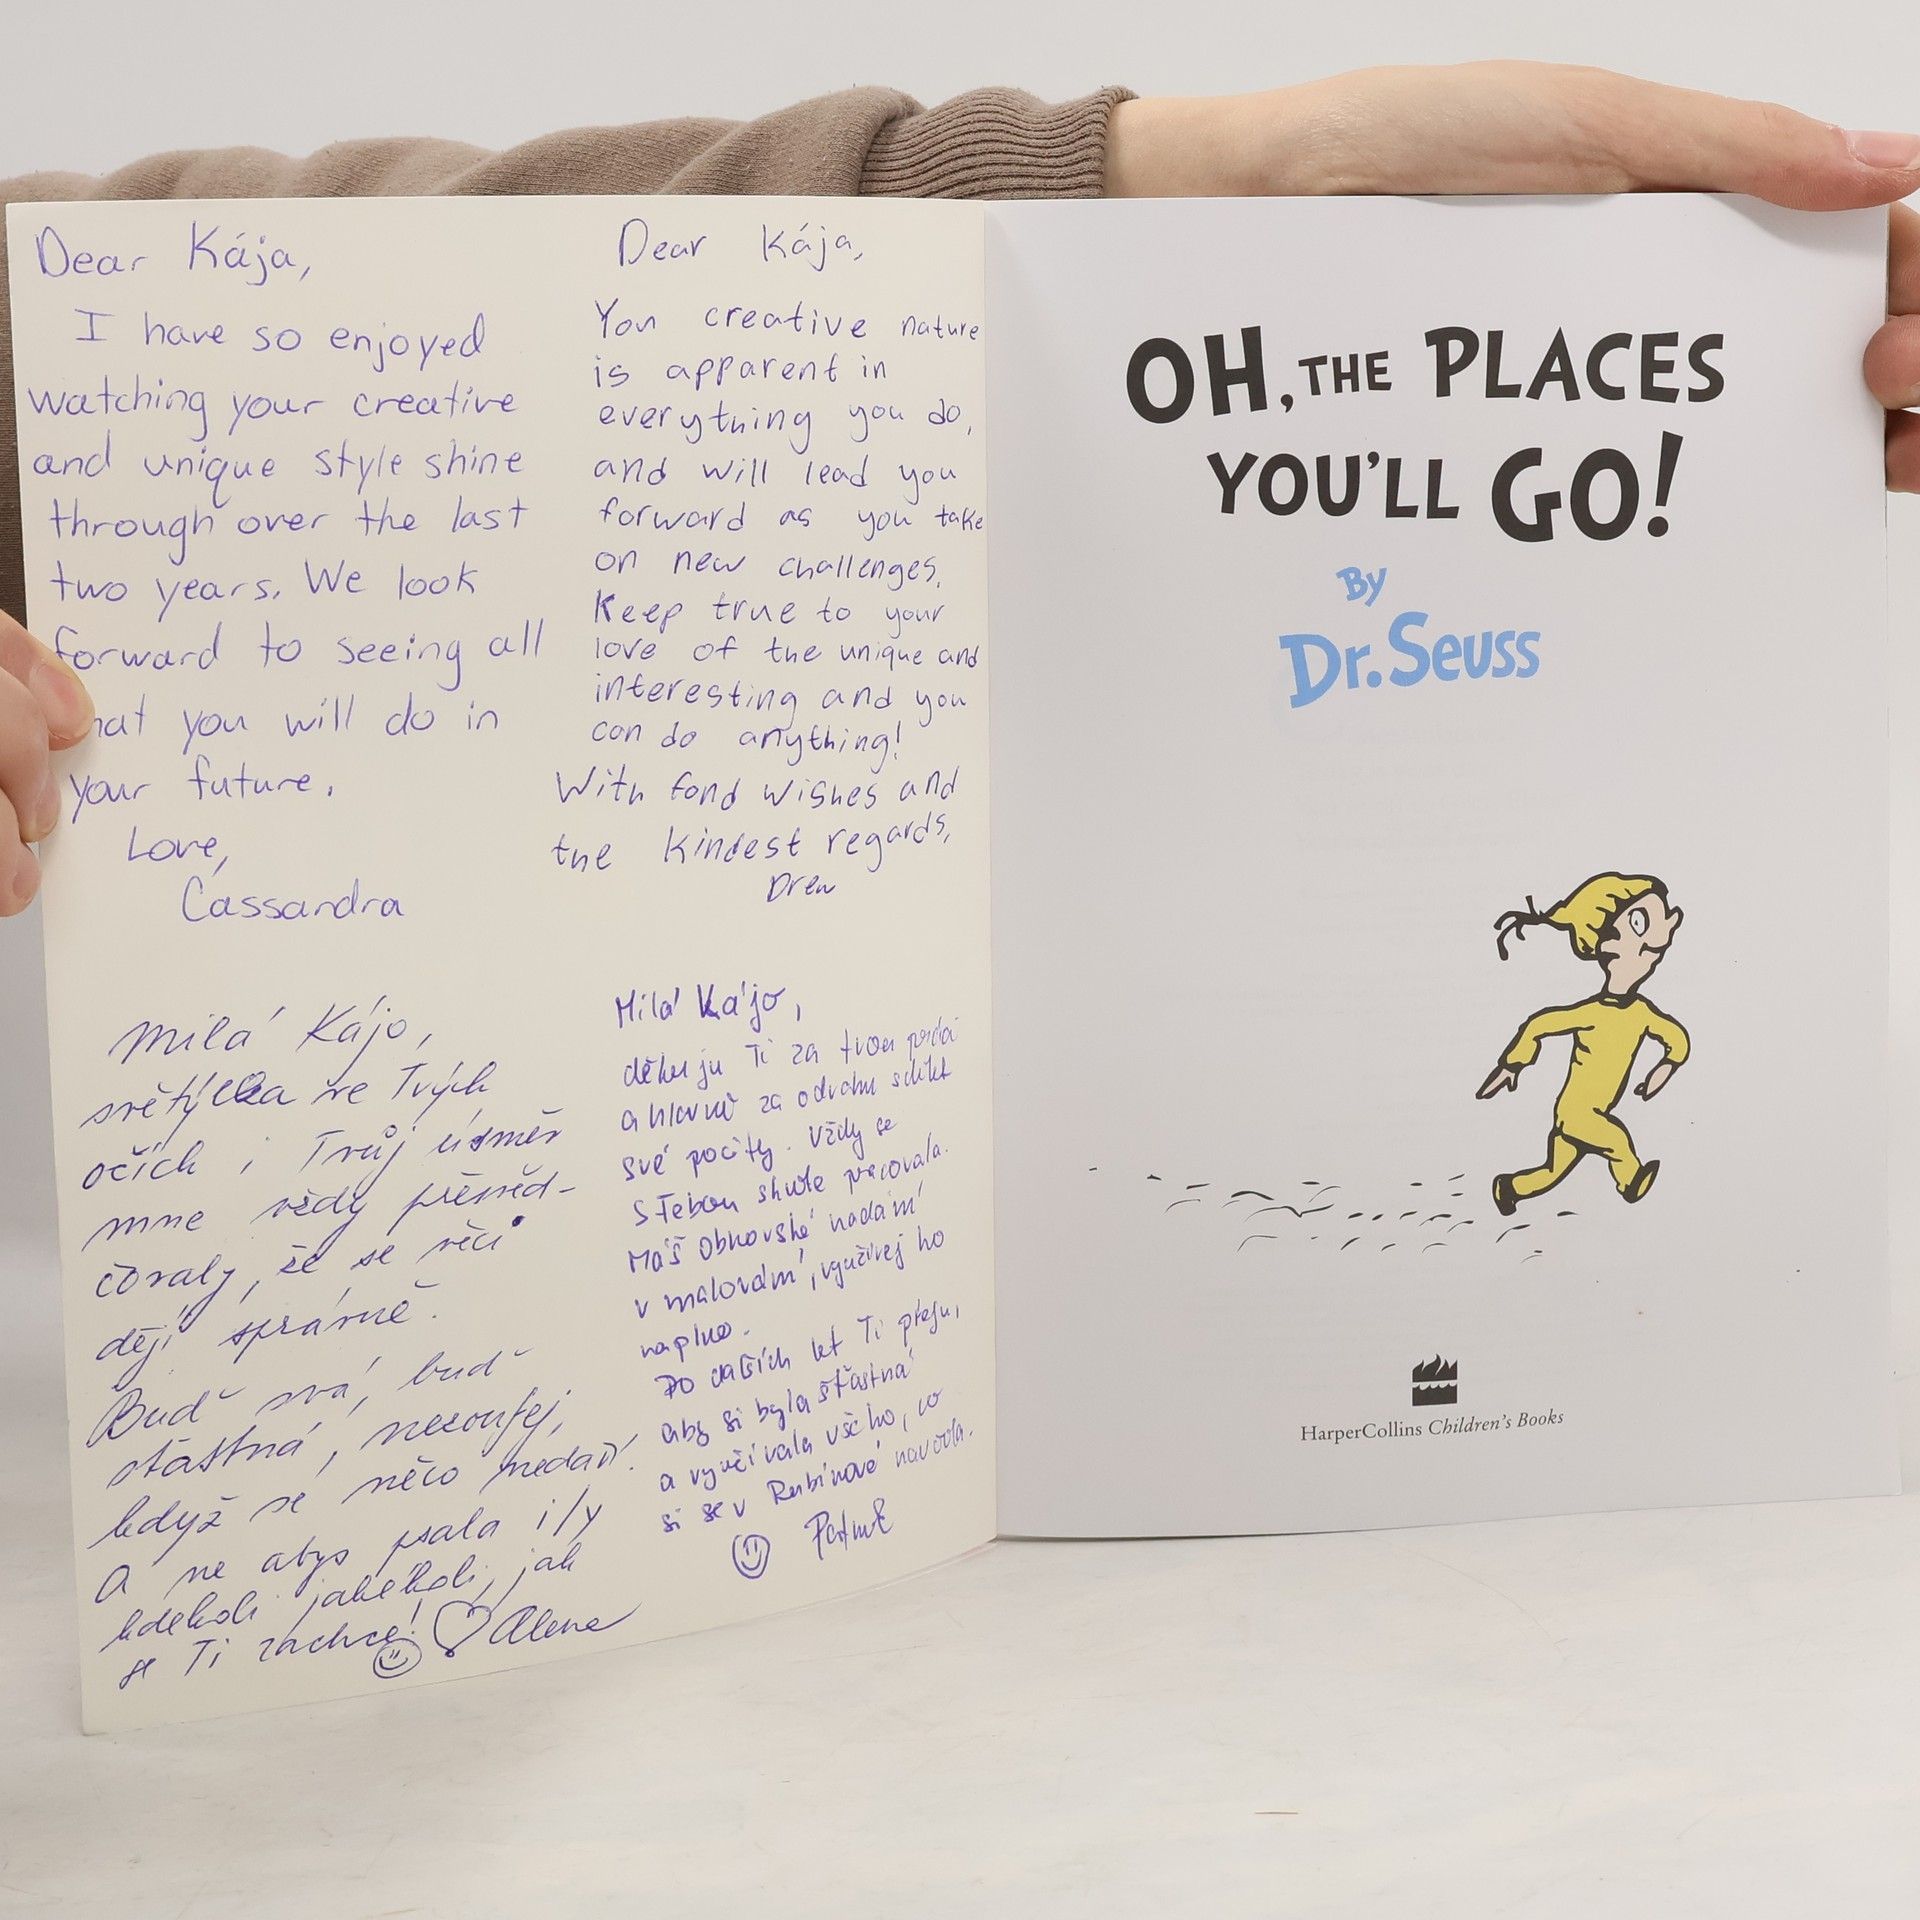 Dear Kája,
I have so enjoyed
watching your creative
and unique style shine
through over the last
two years. We look
forward to seeing all
hat you will do in
your future.
Love,
Cassandra
Dear Kája,
You creative nature
is apparent in
everything you do,
and will lead you
forward as you take
on new challenges.
Keep true to your
love of the unique and
interesting and you
can do anything!
With fond wishes and
the kindest regards,
Drew
Milá Kájo,
světýlka ve Tvých
očích i Tvůj úsměv
mne vždy přesvěd-
čovaly, že se věci
dějí správně.
Buď svá, buď
šťastná, nezoufej,
když se něco nedaří.
A ne abys psala i/y
kdekoli jakékoli, jak
se Ti zachce! Alena
Milá Kájo,
děkuju Ti za tvou
a hlavně za odvahu sdílet
své pocity. Vždy se
s Tebou skvěle pracovala.
Máš obrovské nadání
v malování, využívej ho
naplno.
Do dalších let Ti přeju,
aby si byla šťastná
a využívala všeho, co
si se v Rubínové naučila.
OH, THE PLACES
YOU'LL GO!
By
Dr. Seuss
HarperCollins Children's Books